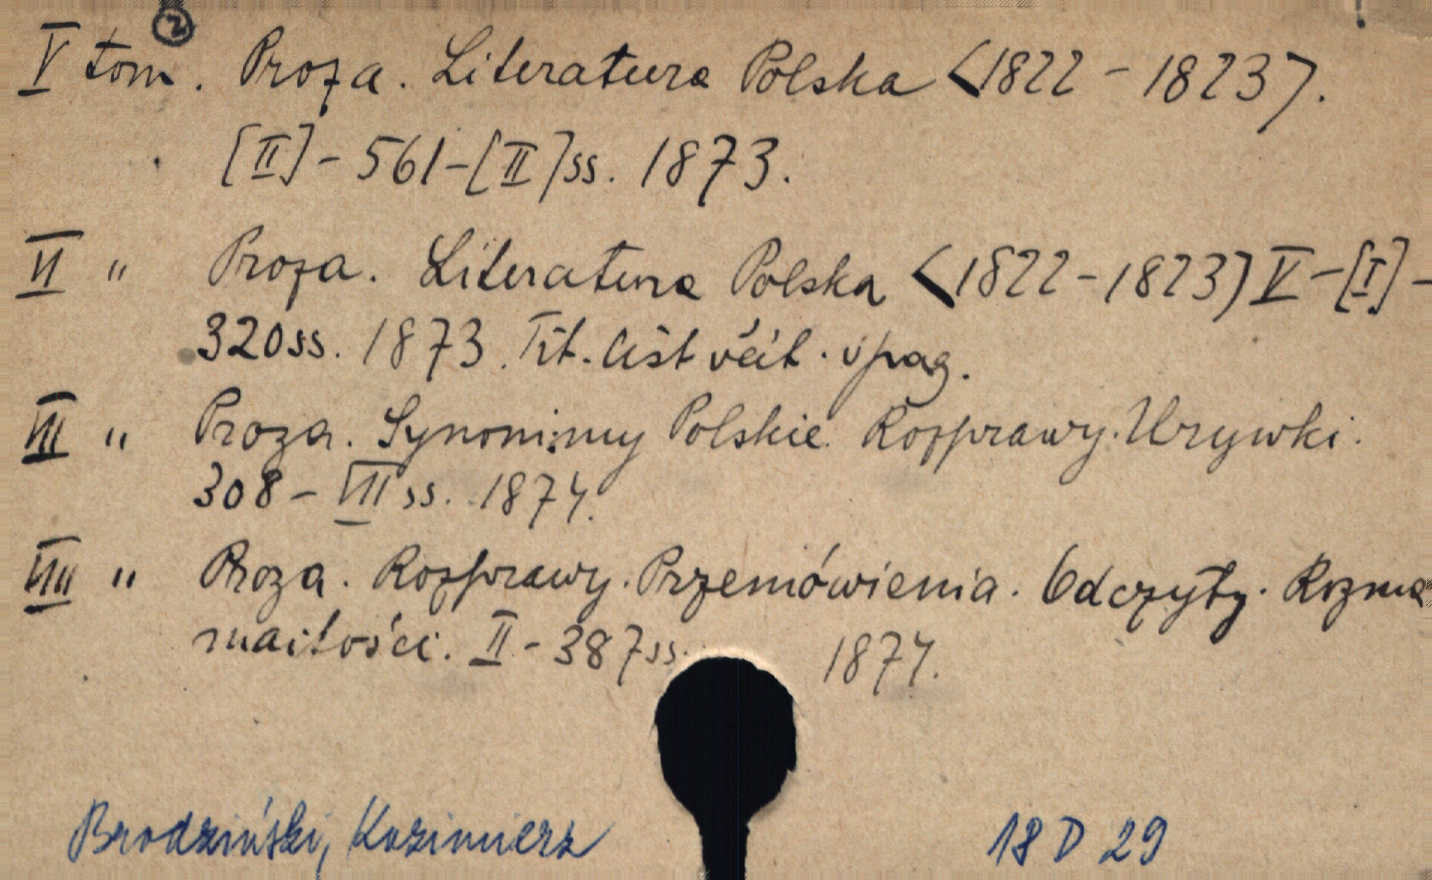 ②
V tom. Proza. Literatura Polska <1822 - 1823>.
[II] - 561 - [II] ss. 1873.
VI " Proza. Literatura Polska <1822 - 1823) V - [I] -
320 ss. 1873. Tit. list
VII " Proza. Synonimy Polskie. Rozprawy. Urywki.
308 - VII ss. 1874.
VIII " Proza. Rozprawy. Przemówienia. Odczyty. Rozma
maitości. II - 387 ss. 1874.
Brodziński, Kazimierz 18 D 29